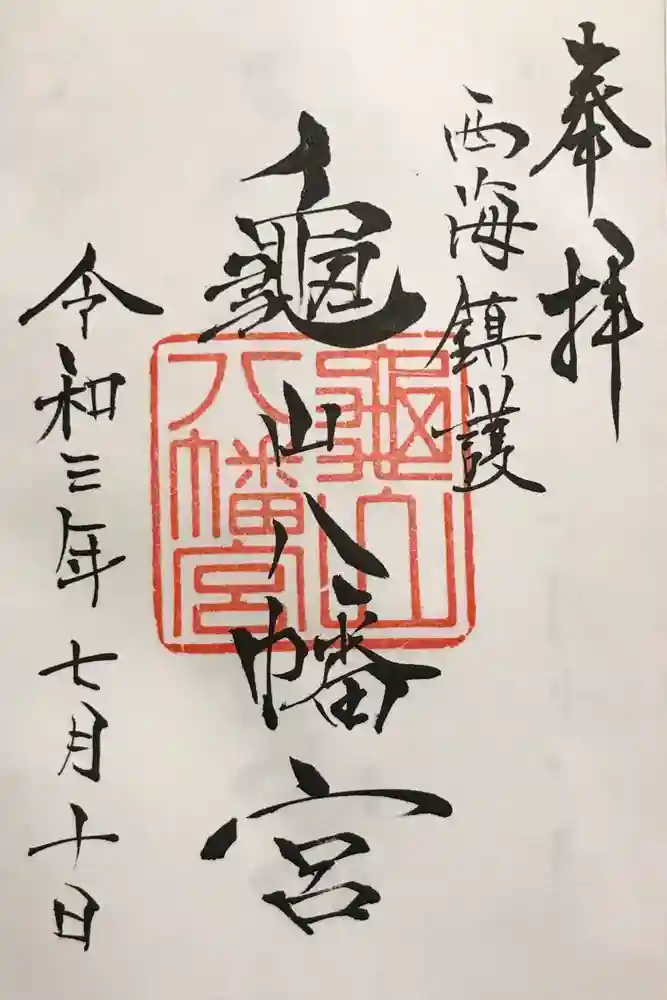 奉拝
西海鎮護
龜山八幡宮
龜山八幡宮
令和三年七月十日